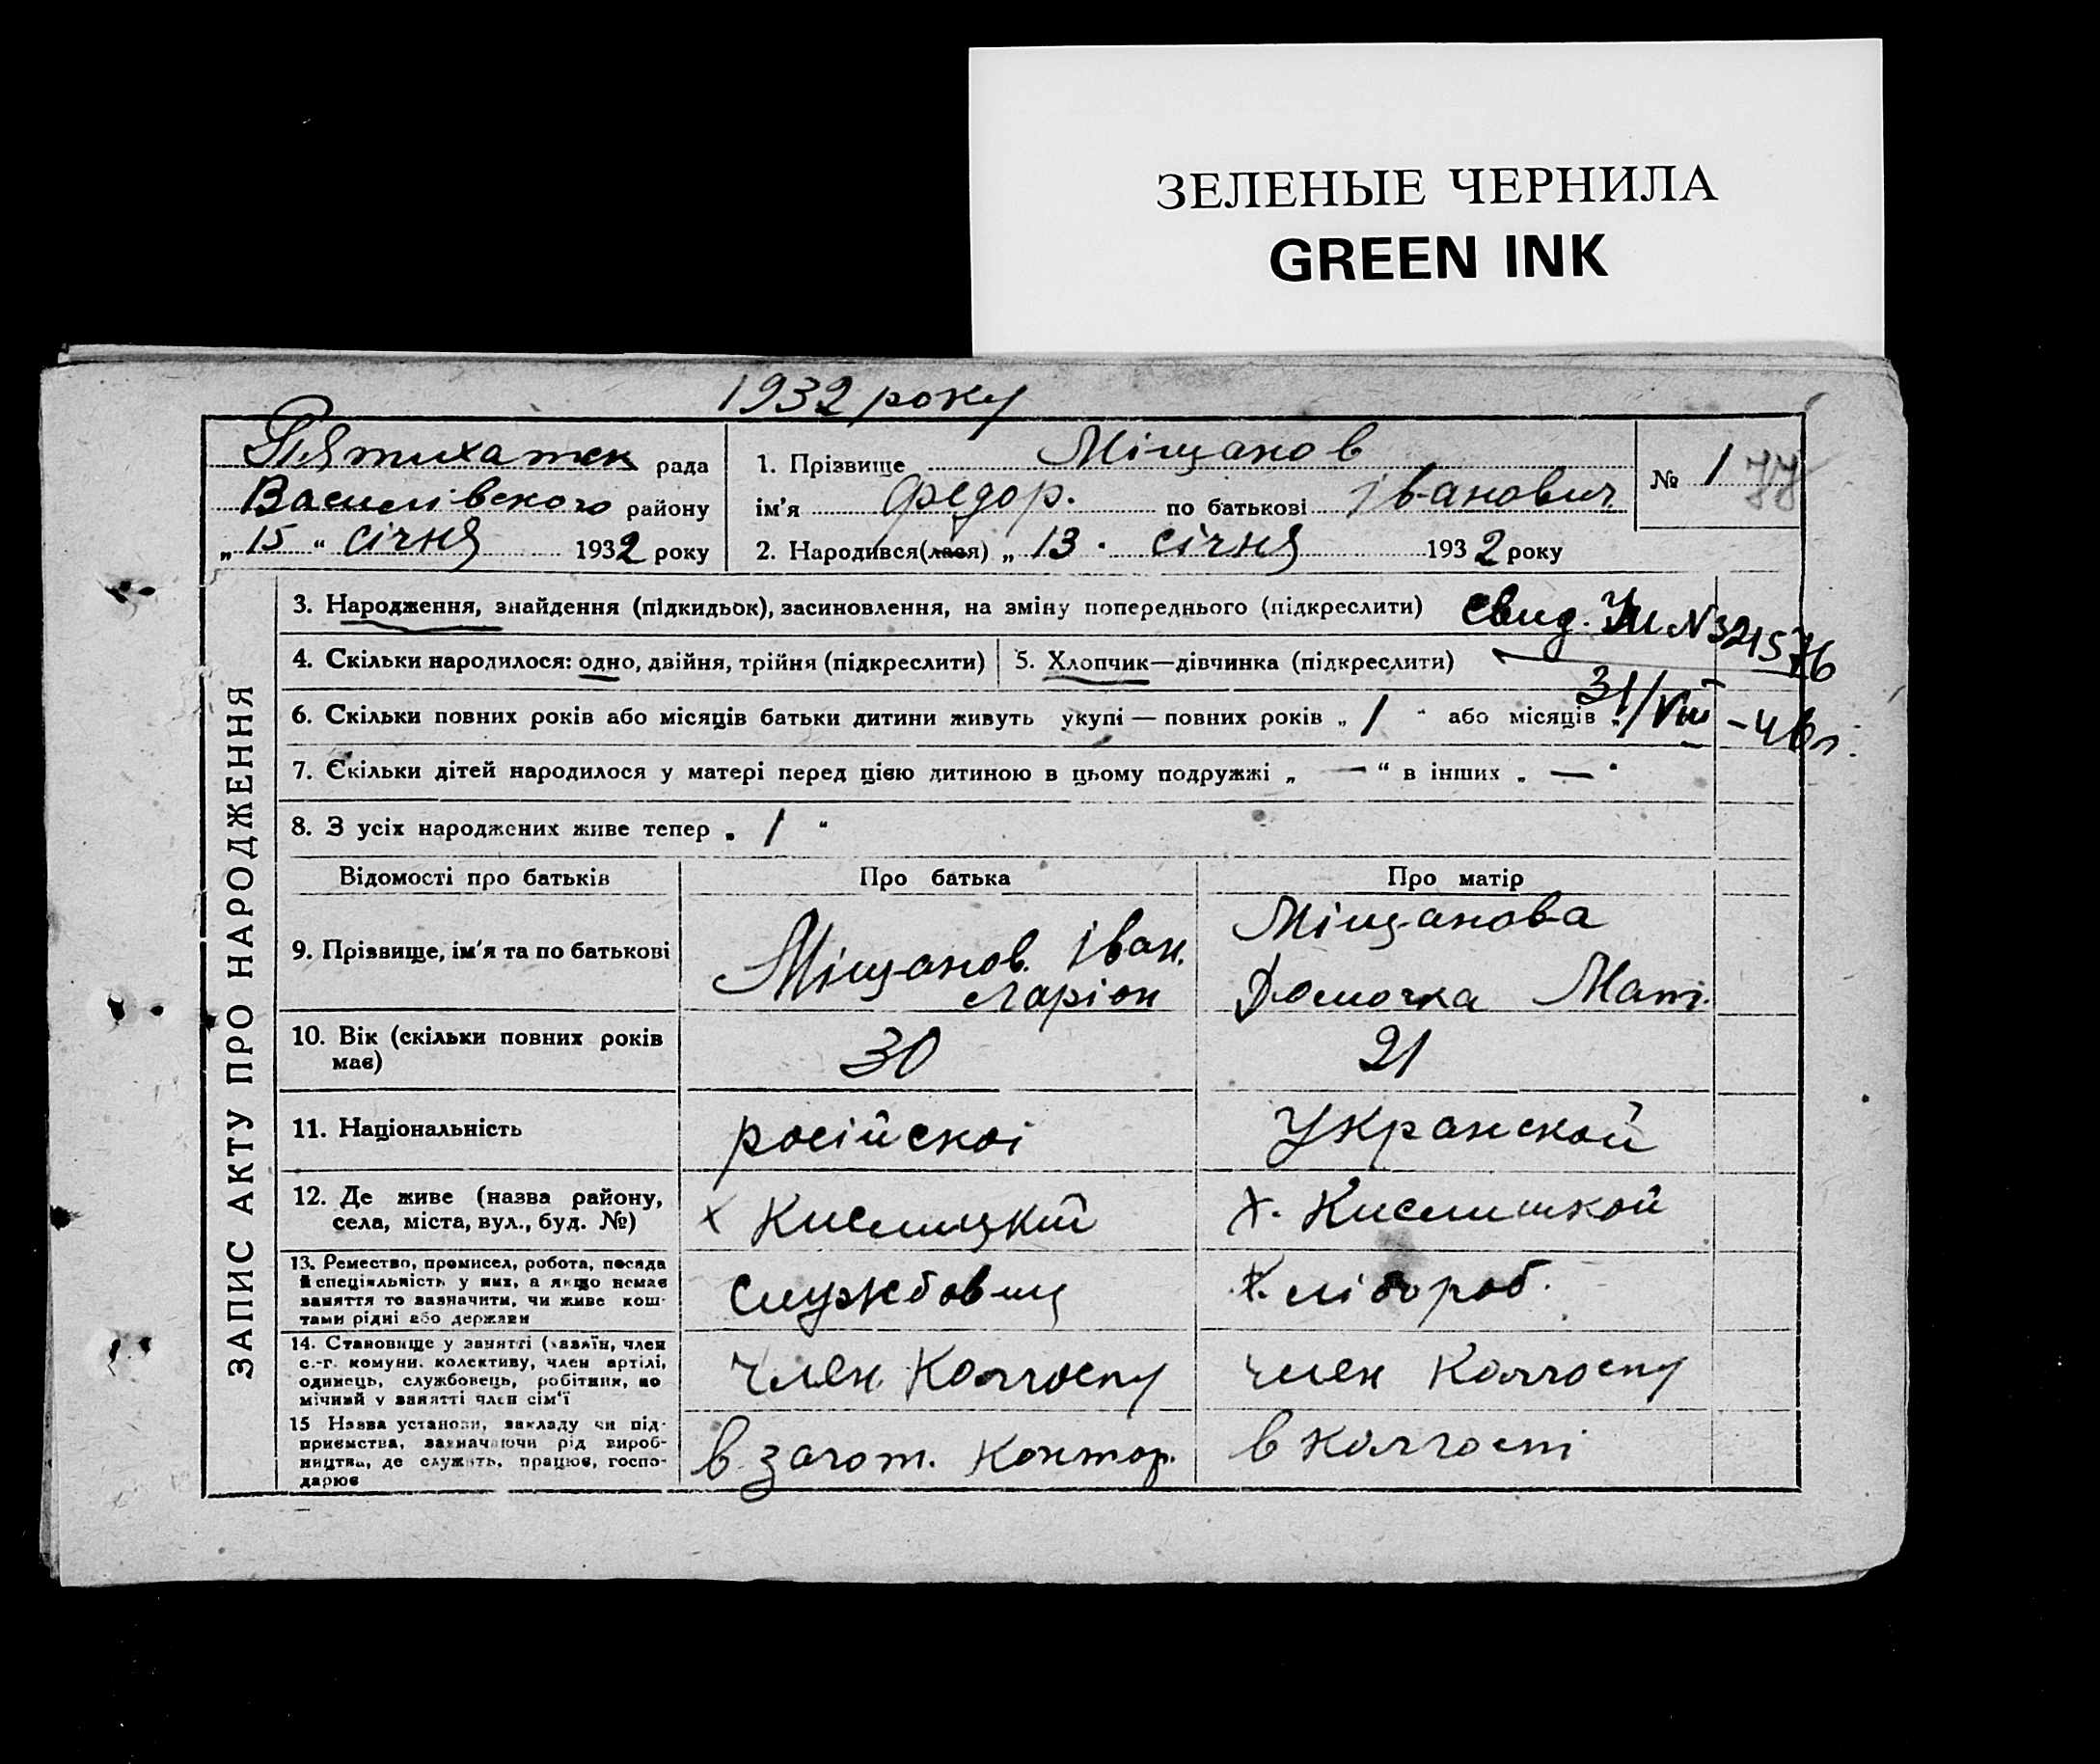 ЗЕЛЕНЫЕ ЧЕРНИЛА
GREEN INK
1932 року
Пятихатск рада
Василівского району
„ 15 “ січня 1932 року
1. Прізвище Міщанов
ім'я Федор. по батькові Іванович.
2. Народився(лася) „ 13 • січня 1932 року
№ 1 77
ЗАПИС АКТУ ПРО НАРОДЖЕННЯ
3. Народження, знайдення (підкидьок), засиновлення, на зміну попереднього (підкреслити)
Свид. № 321576
31/VIII - 46 г.
4. Скільки народилося: одно, двійня, трійня (підкреслити)
5. Хлопчик—дівчинка (підкреслити)
6. Скільки повних років або місяців батьки дитини живуть укупі — повних років „ 1 “ або місяців „
7. Скільки дітей народилося у матері перед цією дитиною в цьому подружжі „ — “ в інших „ — “
8. З усіх народжених живе тепер „ 1 “
Відомості про батьків Про батька Про матір
9. Прізвище, ім'я та по батькові
Міщанов. Іван.
Ларіон
Міщанова
Домочка Маті.
10. Вік (скільки повних років
має)
30 21
11. Національність
російскоі Укранской
12. Де живе (назва району,
села, міста, вул., буд. №)
х Кислицкий х. Кислишкой
13. Ремество, промисел, робота, посада
й спеціяльність у них, а якщо немає
заняття то зазначити, чи живе кош-
тами рідні або держави
Службовиц Хлібороб.
14. Становище у занятті (хазяїн, член
с.-г. комуни, колективу, член артілі,
одинець, службовець, робітник, по
мічний у занятті член сім'ї
член Колгоспу член Колгоспу
15 Назва установи, закладу чи під-
приємства, зазначаючи рід вироб-
ництва, де служить, працює, госпо-
дарює
в загот. контор. в колгоспі